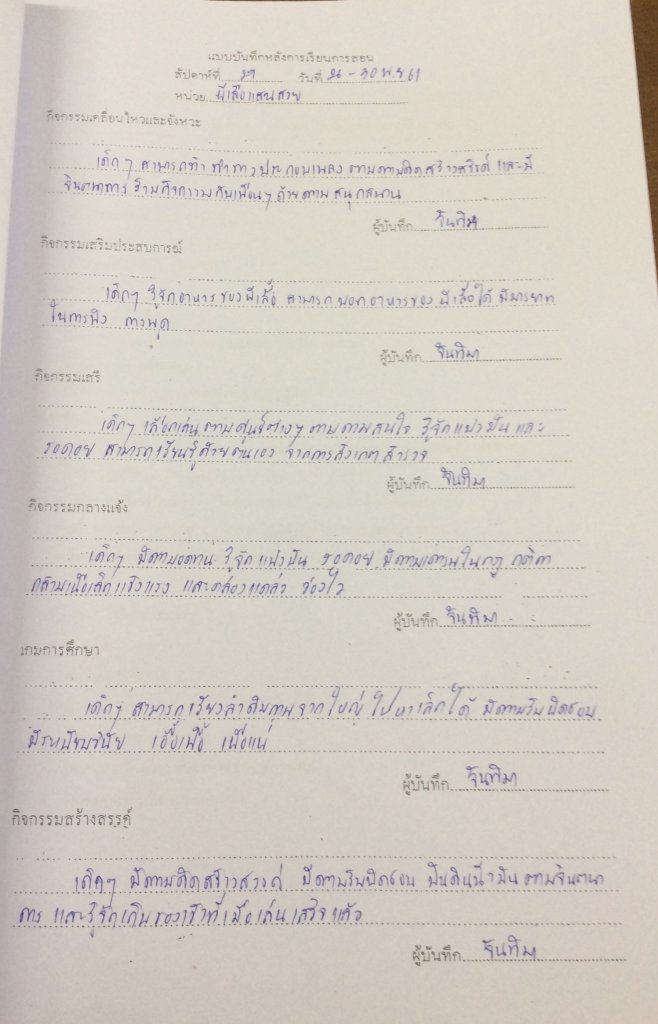 แบบบันทึกหลังการเรียนการสอน
สัปดาห์ที่ วันที่ ๒๖ - ๓๐ พ.ย ๖๑
หน่วย ผีเสื้อแสนสวย
กิจกรรมเคลื่อนไหวและจังหวะ
เด็กๆ สามารถทำท่าทางประกอบเพลง ตามความคิดสร้างสรรค์ และมี
จินตนาการ ร่วมกิจกรรมกับเพื่อนๆ ด้วยความสนุกสนาน
ผู้บันทึก จันทิมา
กิจกรรมเสริมประสบการณ์
เด็กๆ รู้จักอาหารของผีเสื้อ สามารถบอกอาหารของผีเสื้อได้ มีมารยาท
ในการฟัง การพูด
ผู้บันทึก จันทิมา
กิจกรรมเสรี
เด็กๆ เลือกเล่นตามศูนย์ต่างๆ ตามความสนใจ รู้จักแบ่งปัน และ
รอคอย สามารถเรียนรู้ด้วยตนเอง จากการสังเกตสำรวจ
ผู้บันทึก จันทิมา
กิจกรรมกลางแจ้ง
เด็กๆ มีความอดทน รู้จักแบ่งปัน รอคอย มีความเคารพในกฎ กติกา
กล้ามเนื้อเล็กแข็งแรง และคล่องแคล่ว ว่องไว
ผู้บันทึก จันทิมา
เกมการศึกษา
เด็กๆ สามารถเรียงลำดับภาพจากใหญ่ ไปหาเล็กได้ มีความรับผิดชอบ
มีระเบียบวินัย เอื้อเฟื้อ เผื่อแผ่
ผู้บันทึก จันทิมา
กิจกรรมสร้างสรรค์
เด็กๆ มีความคิดสร้างสรรค์ มีความรับผิดชอบ ปั้นดินน้ำมันตามจินตนา
การ และรู้จักเก็บของเข้าที่เมื่อเล่นเสร็จแล้ว
ผู้บันทึก จันทิมา